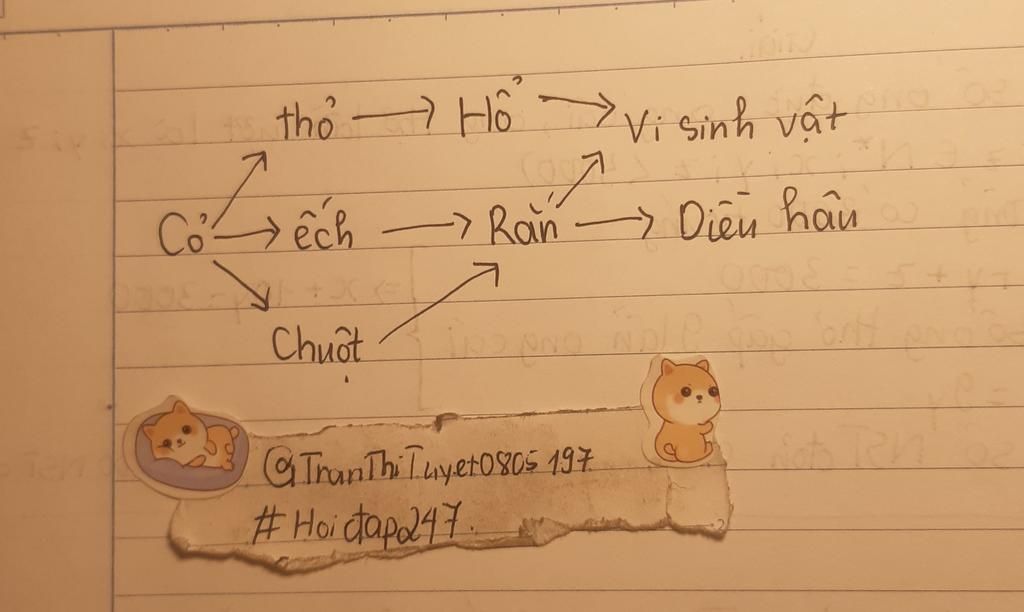 thỏ → Hổ → Vi sinh vật
Cỏ → ếch → Rắn → Diều hâu
Chuột
@TranThiTuyet0805197
#Hoidap247.